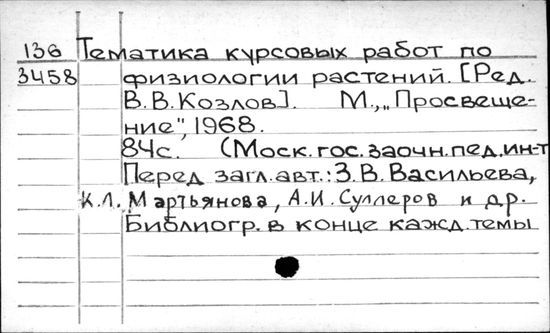 136 Тематика курсовых работ по
3458 физиологии растений. [Ред.
В.В.Козлов]. М., „Просвеще-
ние", 1968.
84с. (Моск.гос.заочн.пед.ин-т
Перед загл.авт.: З.В.Васильева,
К.Л. Мартьянова, А.И. Суллеров и др.
Библиогр. в конце кажд.темы